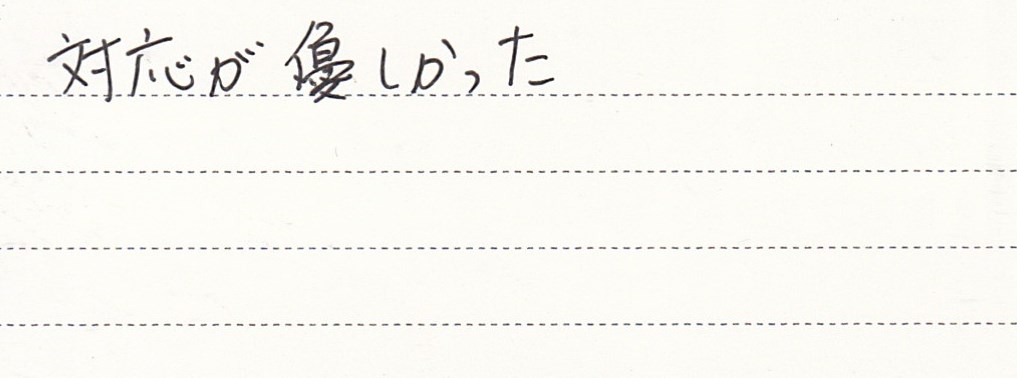 対応が優しかった